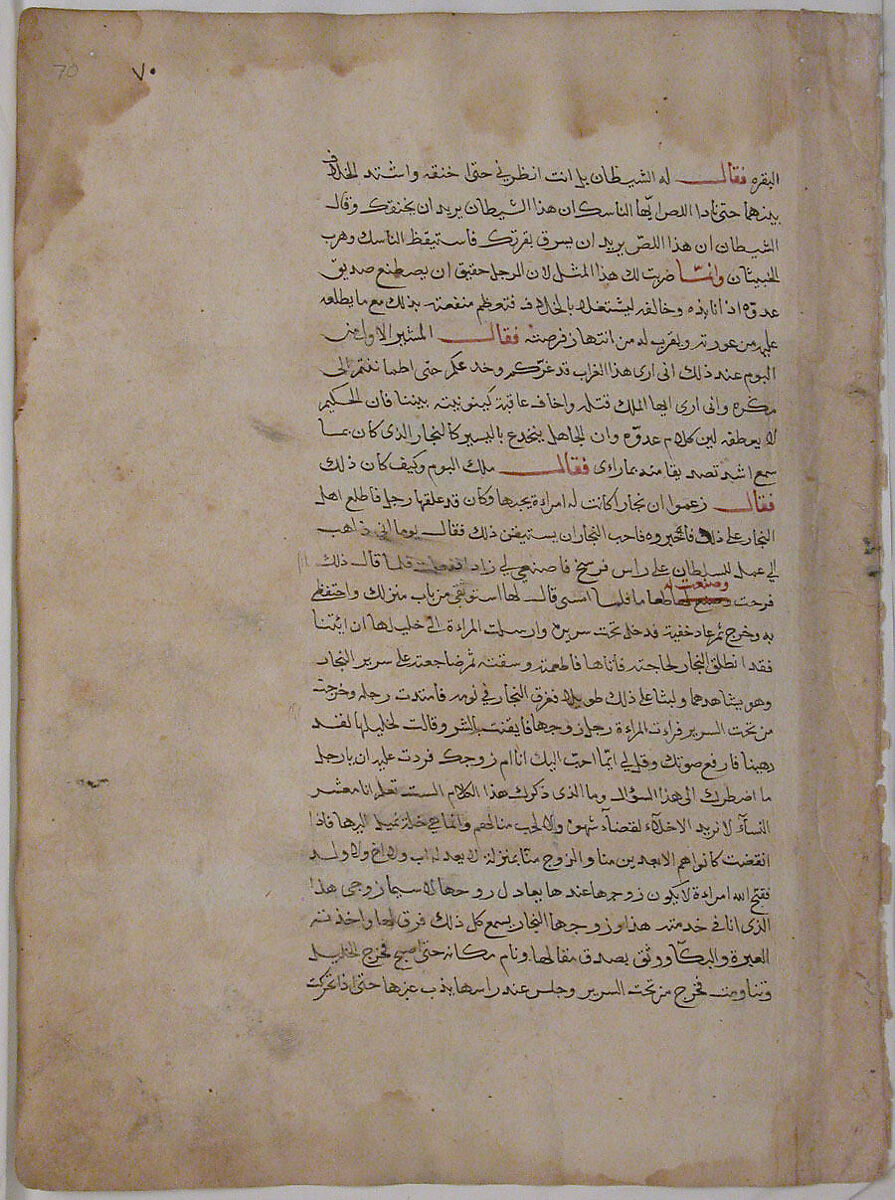 70 ٧٠
البقره فقال له الشيطان بل انت انظرني حتى اخنقه واشتد الخلاف
بينهما حتى نادا اللص ايها الناسك ان هذا الشيطان يريد ان يخنقك وقال
الشيطان ان هذا اللص يريد ان يسرق بقرتك فاستيقظ الناسك وهرب
الخبيثان وانما ضربت لك هذا المثل لان الرجل حقيق ان يصطنع صديق
عدوه اذ انابذه وخالفه ليشتغلا بالخلاف فتعظم منفعته بذلك مع ما يطلعه
عليه من عورته ويقرب له من انتهاز فرصته فقال المشير الاول من
البوم عند ذلك اني ارى هذا الغراب قد غركم وخدعكم حتى اطماننتم الى
مكره واني ارى ايها الملك قتله واخاف عاقبة كينونيته بيننا فان الحكيم
لا يعطفه لين كلام عدوه وان الجاهل ينخدع باليسير كالنجار الذى كان بما
سمع اشد تصديقا منه بما راءى فقال ملك البوم وكيف كان ذلك
فقال زعموا ان نجارا كانت له امراءة يحبها وكان قد علقها رجل فاطلع اهل
النجار على ذلك فاخبروه فاحب النجار ان يستيقن ذلك فقال يوما اني ذاهب
الى عمل للسلطان على راس فرسخ فاصنعي لي زادا ففعلت فلما قال ذلك
فرحت وصنعت له طعاما فلما امسى قال لها استوثقي من باب منزلك واحتفظي
به وخرج ثم عاد خفية فدخل تحت سريره وارسلت المراءة الى خليلها ان ائتنا
فقد انطلق النجار لحاجته فاتاها فاطعمته وسقته ثم ضاجعته على سرير النجار
وهو يشاهدهما ولبثا على ذلك طويلا فغرق النجار في نومه فامتدت رجله وخرجت
من تحت السرير فراءت المراءة رجل زوجها فايقنت بالشر وقالت لخليلها لقد
رهبنا فارفع صوتك وقل لي ايما احب اليك انا ام زوجك فردت عليه ان يا رجل
ما اضطرك الى هذا السؤال وما الذى ذكرك هذا الكلام الست تعلم انا معشر
النساء لا نريد الاخلاء لقضاء شهوة ولا لحب منا لهم وانما هي خلة نميل اليها فاذا
انقضت كانوا هم الابعدين منا والزوج منا بمنزلة لا يعدله اب ولا اخ ولا ولد
فقبح الله امراءة لا يكون زوجها عندها يعادل روحها لا سيما زوجي هذا
الذى انا في خدمته هذا وزوجها النجار يسمع كل ذلك فرق لها واخذته
العبرة والبكآ ووثق بصدق مقالها ونام مكانه حتى اصبح فخرج الخليل
وتناومت فخرج من تحت السرير وجلس عند راسها يذب عنها حتى اذا تحركت